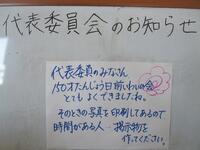 代表委員会のお知らせ
代表委員のみなさん
150才たんじょう日前いわいの会
とてもよくできましたね。
そのときの写真を印刷してあるので
時間がある人 掲示物を
作ってください。